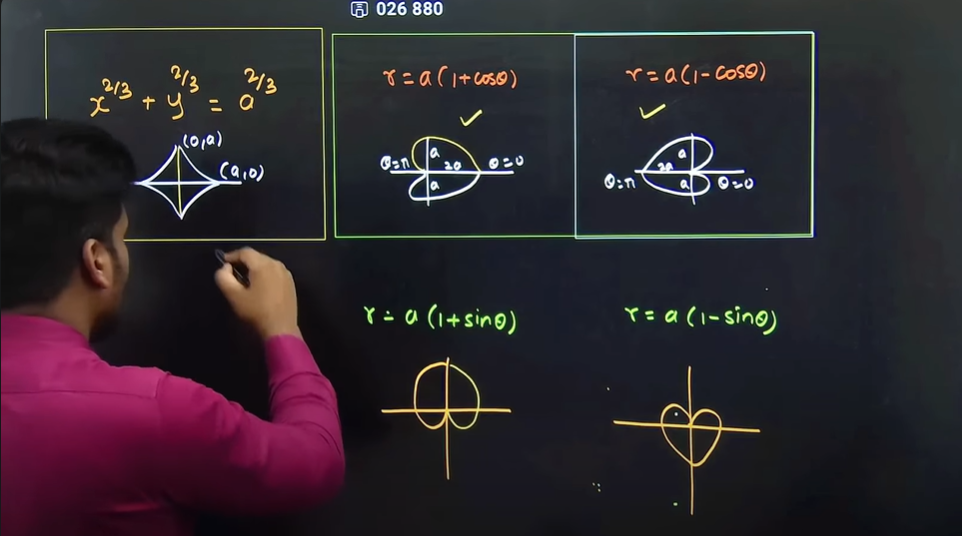 026 880
x^{2/3} + y^{2/3} = a^{2/3}
(0,a)
(a,0)
r = a(1+cosθ)
a
θ=π 2a θ=0
a
r = a(1-cosθ)
a
2a
θ=π a θ=0
r = a(1+sinθ)
r = a(1-sinθ)